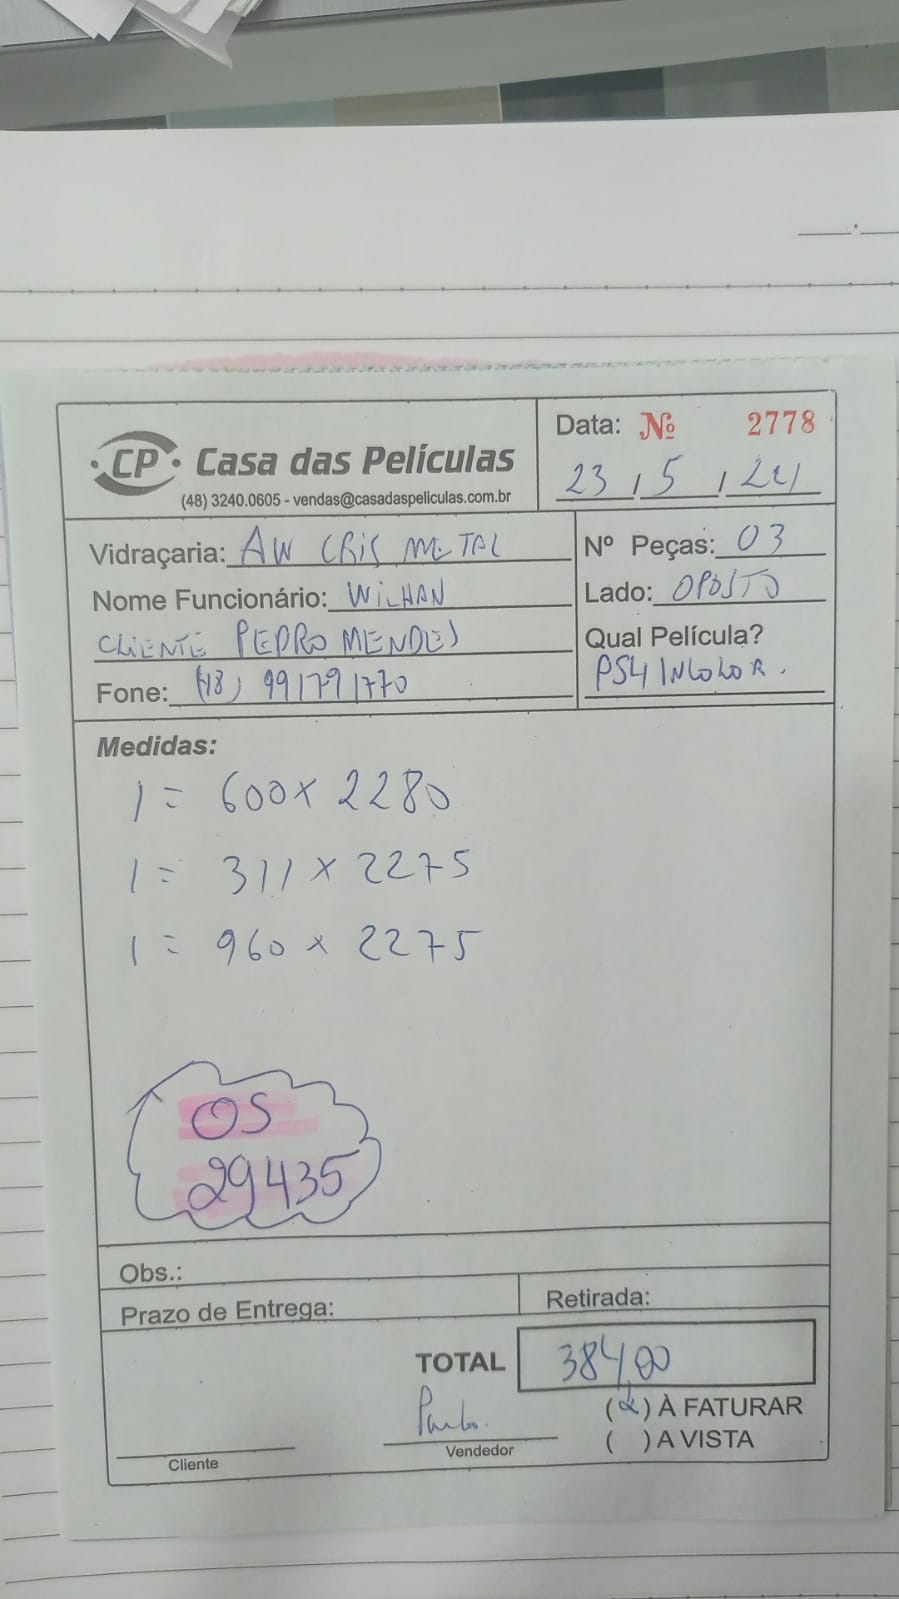 CP Casa das Películas
(48) 3240.0605 - vendas@casadaspeliculas.com.br
Data: Nº 2778
23 / 5 / 24
Vidraçaria: AW CRIS METAL
Nº Peças: 03
Nome Funcionário: WILHAN
Lado: OPOSTO
CLIENTE PEDRO MENDES
Qual Película?
Fone: (48) 991791770
PS4 INCOLOR.
Medidas:
1 = 600 x 2280
1 = 311 x 2275
1 = 960 x 2275
OS
29435
Obs.:
Prazo de Entrega:
Retirada:
TOTAL 384,00
Paulo.
(x) À FATURAR
( ) A VISTA
Cliente
Vendedor